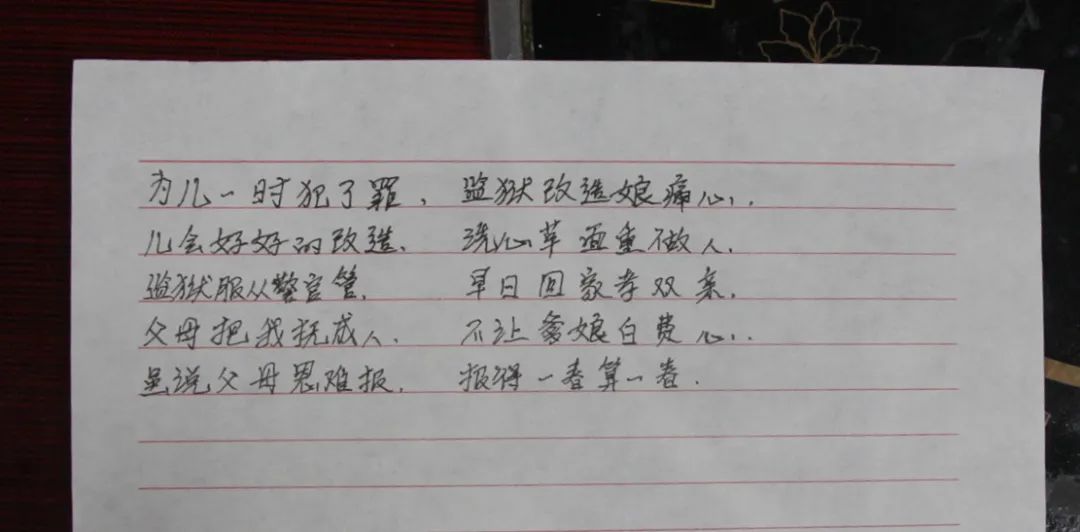 为儿一时犯了罪, 监狱改造娘痛心.
儿会好好的改造. 洗心革面重做人.
监狱服从警官管. 早日回家孝双亲.
父母把我抚成人. 不让爹娘白费心.
虽说父母恩难报. 报得一春算一春.